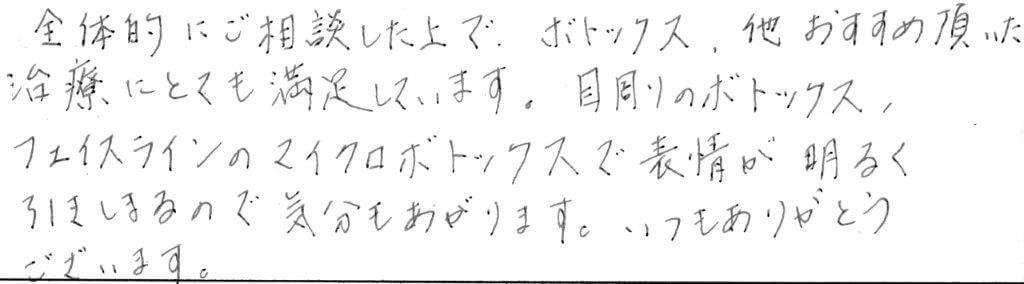 全体的にご相談した上で、ボトックス、他おすすめ頂いた
治療にとても満足しています。目周りのボトックス、
フェイスラインのマイクロボトックスで表情が明るく
引きしまるので気分もあがります。いつもありがとう
ございます。